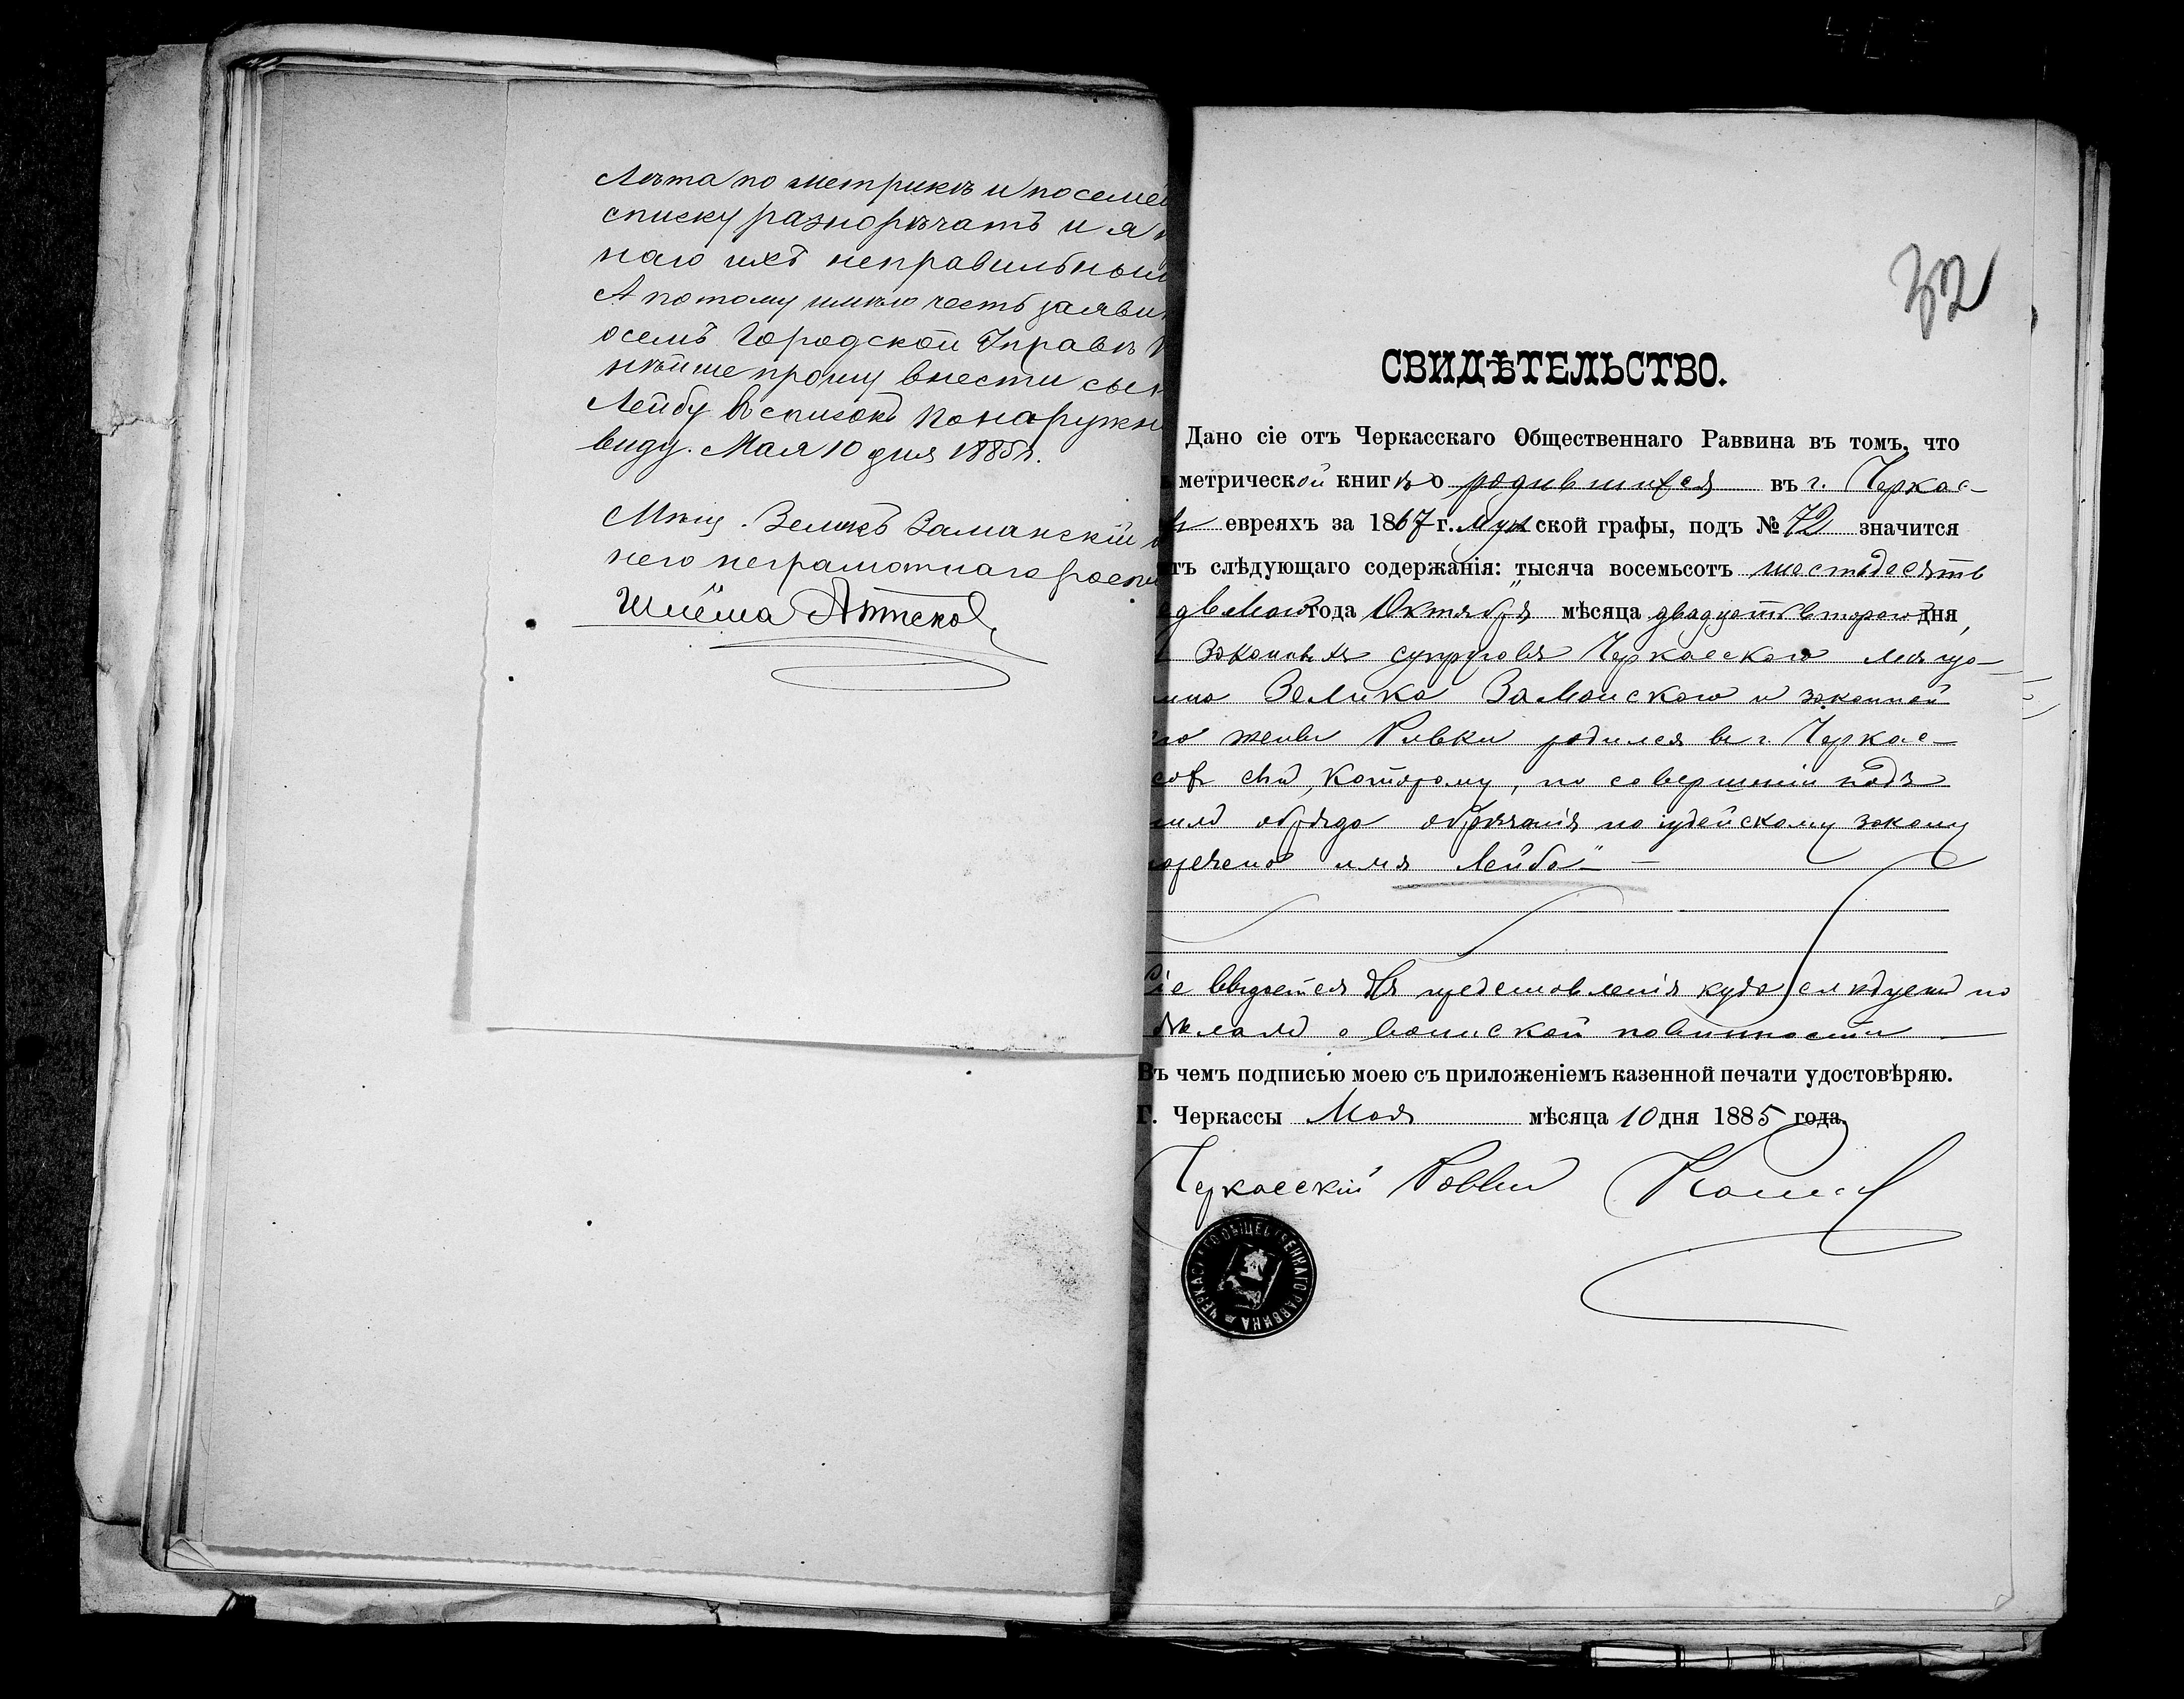 Лѣта по метрикѣ и по семей
списку разнорѣчатъ и я
наго ихъ неправильным
А потому имѣю честь заявит
о семъ Городской Управѣ
нѣйше прошу внести сын
Лейбу въ списокъ по наружн
виду. Мая 10 дня 1885 г.
Мѣщ. Зеликъ Заманскій
него неграмотнаго роспи
Шлёма
32
СВИДѢТЕЛЬСТВО.
Дано сіе отъ Черкасскаго Общественнаго Раввина въ томъ, что
метрической книгѣ о родившихся въ г. Черкас-
евреяхъ за 1867 г. мужской графы, подъ № 72 значится
тъ слѣдующаго содержанія: „тысяча восемьсотъ шестьдесятъ
едьмого года Октября мѣсяца двадцать второго дня,
законныхъ супруговъ Черкасскаго мѣща-
нина Зелика Заманскаго и законной
его жены Ривки родился въ г. Черкас-
сахъ сынъ, которому, по совершеніи надъ
нимъ обряда обрѣзанія по іудейскому закону
наречено имя Лейба" —
Сіе выдается для представленія куда слѣдуетъ по
дѣламъ о воинской повинности —
Въ чемъ подписью моею съ приложеніемъ казенной печати удостовѣряю.
Г. Черкассы Мая мѣсяца 10 дня 1885 года.
Черкасскій Раввин
ЧЕРКАССКАГО ОБЩЕСТВЕННАГО РАВВИНА